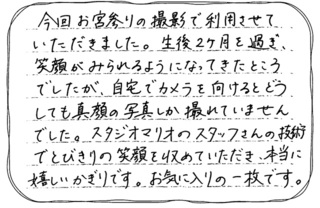 今回お宮参りの撮影で利用させて
いただきました。生後2ケ月を過ぎ、
笑顔がみられるようになってきたところ
でしたが、自宅でカメラを向けるとどう
しても真顔の写真しか撮れていません
でした。スタジオマリオのスタッフさんの技術
でとびきりの笑顔を収めていただき、本当に
嬉しいかぎりです。お気に入りの一枚です。